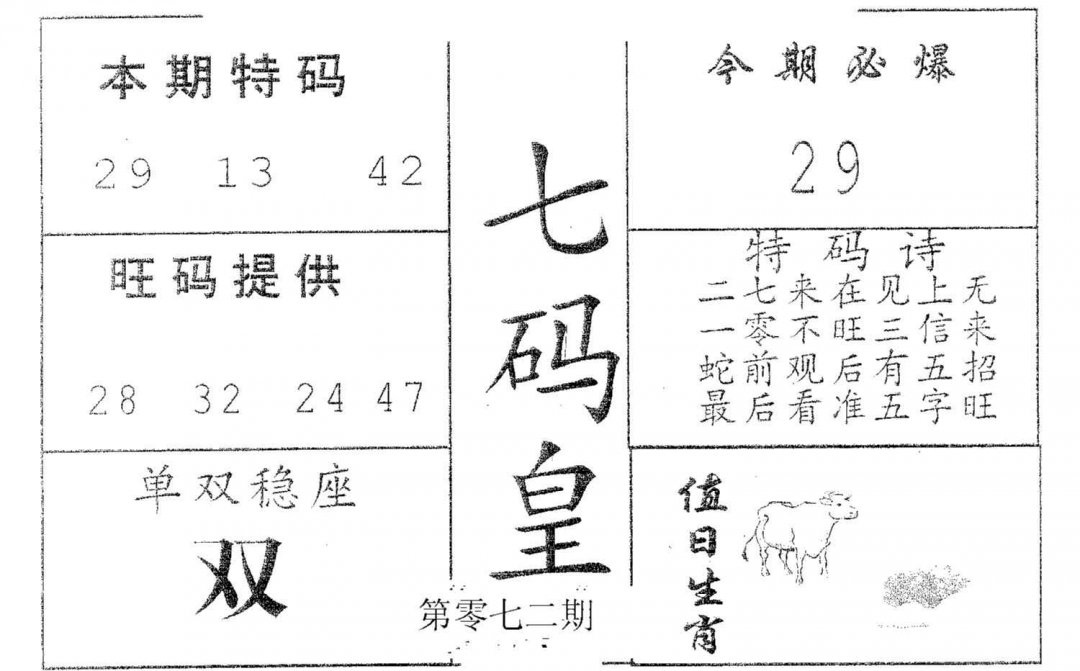 本期特码
29 13 42
旺码提供
28 32 24 47
单双稳座
双
七码皇
第零七二期
今期必爆
29
特码诗
二七来在见上无
一零不旺三信来
蛇前观后有五招
最后看准五字旺
值日生肖